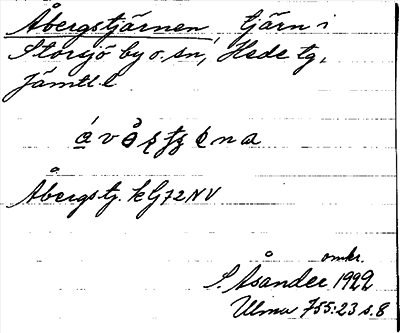 Åbergstjärnen, tjärn i
Storsjö by o. sn, Hede tg,
Jämtl. l
Åbergstj. k G72NV
omkr.
S. Åsander 1922
Ulma 755:23 s. 8